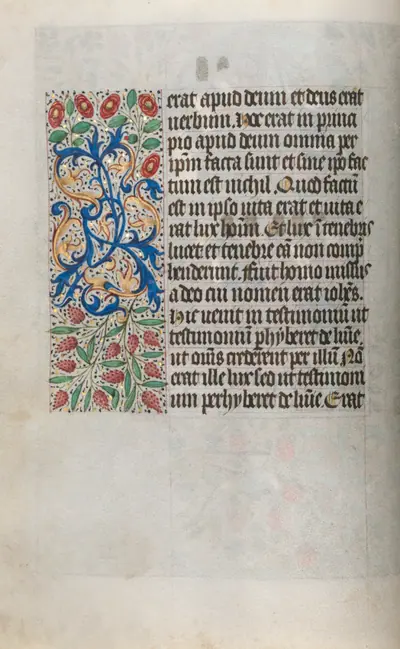 erat apud deum et deus erat
uerbum. Hoc erat in princi
pio apud deum omnia per
ip̄m facta sunt et sine ip̄o fac
tum est nichil. Quod factū
est in ipso uita erat et uita e
rat lux hoīm. Et lux ī tenebris
lucet et tenebre eā non compͥ
henderunt. Fuit homo missus
a deo cui nomen erat ioh̄es.
Hic uenit in testimoniū ut
testimoniū phyberet de lūīe.
ut oīnes crederent per illū. Nō
erat ille lux sed ut testimoni
um perhyberet de lūīe. Erat